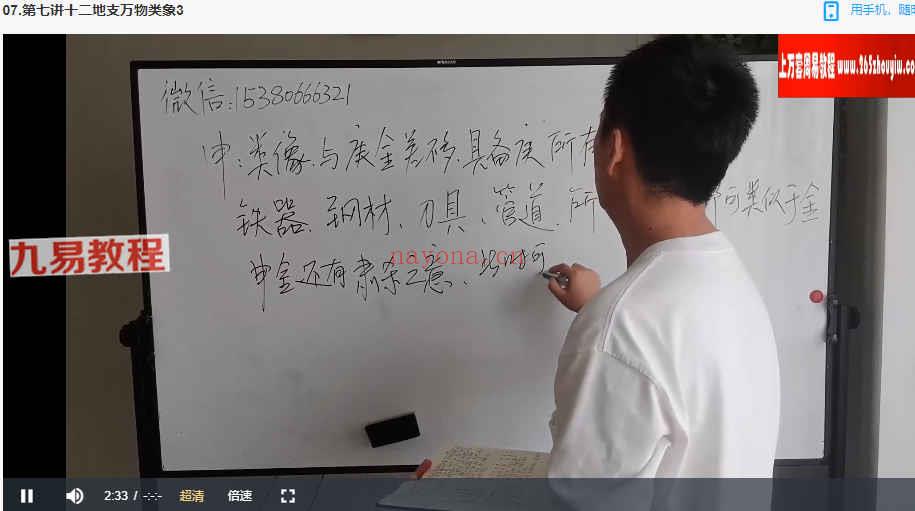 07.第七讲十二地支万物类象3
用手机，随
上万套周易教程 www.265zhouyiu.com
微信:15380666321
申:类像与庚金差移.具备庚 所有
铁器、钢材、刀具、管道.所 可类似于金
九易教程
nayona.cn
申金还有肃杀之意、
2:33 / -:-:- 超清 倍速